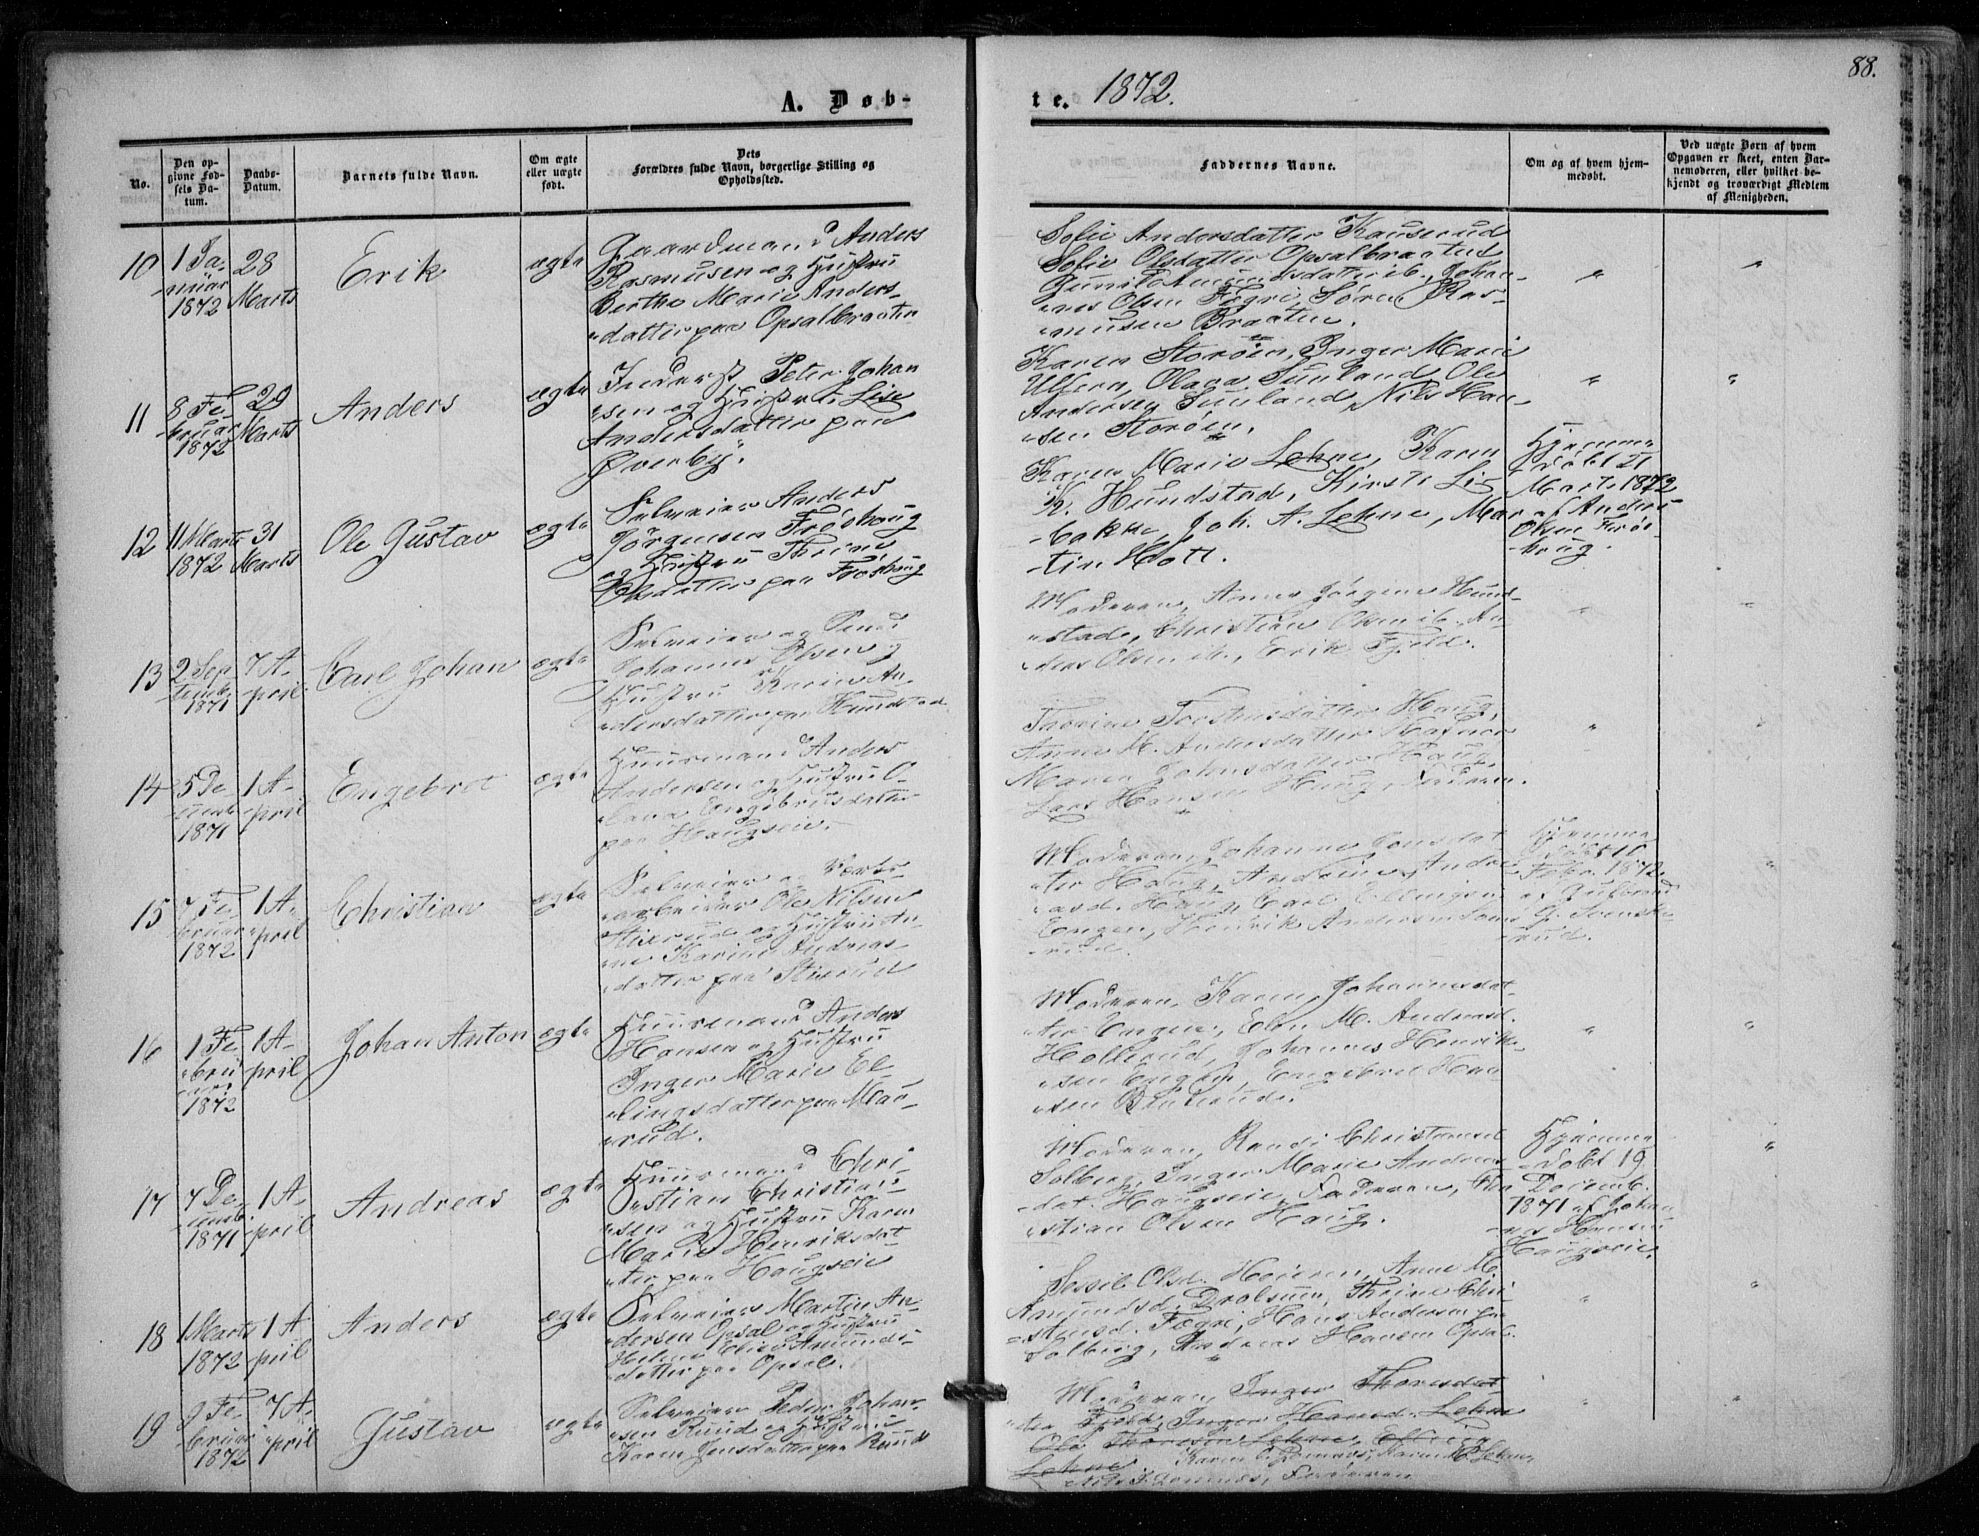 A. Døb-
te. 1872.
88.
No.
Den op-
givne Fød-
sels Da-
tum.
Daabs-
Datum.
Barnets fulde Navn.
Om ægte
eller uægte
født.
Dets
Forældres fulde Navn, borgerlige Stilling og
Opholdssted.
Faddernes Navne.
Om og af hvem hjem-
medøbt.
Ved uægte Børn af hvem
Opgaven er skeet, enten Bar-
nemoderen, eller hvilket be-
kjendt og troværdigt Medlem
af Menigheden.
10
1 Ja-
nuar
1872
28
Marts
Erik
ægte
Gaardmand Anders
Rasmusen og Hustru
Berthe Marie Anders-
datter paa Opsalbraaten
Sofie Andersdatter Kauserud
Sofie Olsdatter Opsalbraaten
Johan-
nes Olsen Fægri, Søren Ras-
musen Braaten.
11
8 Fe-
bruar
1872
29
Marts
Anders
ægte
Inderst Peter Johan
sen og Hustru Lise
Andersdatter paa
Øverby.
Karen Storøen, Inger Marie
Olava Sunland, Ole
Andersen Sunland, Nils Han-
sen Storøen.
12
11 Marts
1872
31
Marts
Ole Gustav
ægte
Selveier Anders
Jörgensen Frøshaug
og Hustru Thrine
Olsdatter paa Frøshaug
Karen Marie Lehne, Karen
K. Hundstad, Kirsti Lie-
bakke, Joh. A. Lehne, Mar-
tin Moll.
Hjemme-
døbt 11
Marts 1872
af Anders
Olsen Frøs-
haug.
13
2 Sep
temb.
1871
7 A-
pril
Carl Johan
ægte
Selveier og Smed
Johannes Olsen og
Hustru Karen An-
dersdatter paa Hundstad
Moderen, Anne Jörgens Hund-
stad, Christian Olsen ib. An-
ders Olsen ib., Erik Fjeld.
14
5 De-
cemb.
1871
1 A-
pril
Engebret
ægte
Huusmand Anders
Andersen og Hustru O-
lava Engebretsdatter
paa Haugseie.
Torstensdatter Haug,
Anne M. Andersdatter
Maren Johnsdatter Haug,
Lars Hansen Haug, Faderen.
15
7 Fe-
bruar
1872
1 A-
pril
Christian
ægte
Selveier og Værks-
arbeider Ole Nilsen
Stixrud og Hustru An-
ne Karine Andreas-
datter paa Stixrud
Moderen, Johanne
ter Haug, Andrine Andre-
asd. Haug, Carl Ellingsen
Engen, Henrik Andersen
rud.
Hjemme
døbt 10
Febr. 1872
af Gulbrand
G. Svenske-
rud.
16
1 Fe
bru
ar
1872
1 A-
pril
Johan Anton
ægte
Huusmand Anders
Hansen og Hustru
Inger Marie El-
lingsdatter paa Mau-
rud.
Moderen, Karen Johannesdat-
ter Engen, Elen M. Andreasd.
Hollerud, Johannes Henrik-
sen Engen, Engebret Han-
sen
17
7 De-
cemb.
1871
1 A-
pril
Andreas
ægte
Huusmand Chri-
stian Christian-
sen og Hustru Karen
Marie Henriksdat-
ter paa Haugseie
Moderen, Randi Christensd.
Solberg, Inger Marie Andreas-
dat. Haugseie, Faderen, Chri-
stian Olsen Haug.
Hjemme-
døbt 19
Decemb.
1871 af Johan-
nes Hansen
Haugseie.
18
1 Marts
1872
1 A-
pril
Anders
ægte
Selveier Martin An-
dersen Opsal og Hustru
Helene Elise Amunds-
datter paa Opsal.
Sessil Olsd. Anne M.
Amundsd. Drolsum, Thrine Chri-
stensd. Fægri, Hans Andersen paa
Solberg, Andreas Hansen Opsal.
19
9 Fe-
bruar
1872
7 A-
pril
Gustav
ægte
Selveier Peder Johan-
sen Ruud og Hustru
Karen Jensdatter paa Ruud
Moderen, Inger Thoresdat-
ter Fjeld, Inger Hansd. Lehne
Ole Thoresen Lehne,
Lehne
Faderen